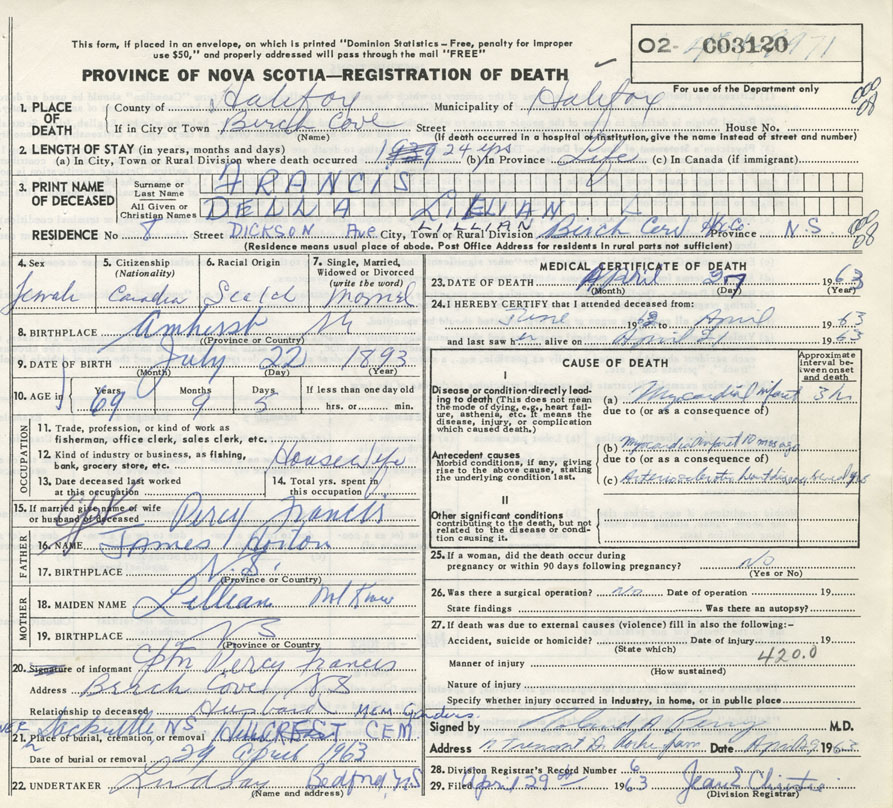 This form, if placed in an envelope, on which is printed "Dominion Statistics – Free, penalty for improper
use $50," and properly addressed will pass through the mail "FREE"
O2- C03120
1971
For use of the Department only
PROVINCE OF NOVA SCOTIA—REGISTRATION OF DEATH
1. PLACE OF DEATH
County of Halifax Municipality of Halifax
If in City or Town Birch Cove Street House No.
(Name) (If death occurred in a hospital or institution, give name instead of street and number)
2. LENGTH OF STAY (in years, months and days)
(a) In City, Town or Rural Division where death occurred 24 yrs (b) In Province Life (c) In Canada (if immigrant)
3. PRINT NAME OF DECEASED
Surname or Last Name FRANCIS
All Given or Christian Names DELLA LILLIAN
LILLIAN
RESIDENCE No 8 Street DICKSON Ave City, Town or Rural Division Birch Cove Hfx Co. Province N.S
(Residence means usual place of abode. Post Office Address for residents in rural parts not sufficient)
4. Sex Female
5. Citizenship (Nationality) Canadian
6. Racial Origin Scotch
7. Single, Married, Widowed or Divorced (write the word) Married
8. BIRTHPLACE Amherst NS
(Province or Country)
9. DATE OF BIRTH July 22 1893
(Month) (Day) (Year)
10. AGE in Years 69 Months 9 Days 5 If less than one day old
hrs. or min.
OCCUPATION
11. Trade, profession, or kind of work as fisherman, office clerk, sales clerk, etc.
12. Kind of industry or business, as fishing, bank, grocery store, etc. Housewife
13. Date deceased last worked at this occupation
14. Total yrs. spent in this occupation
15. If married give name of wife or husband of deceased Percy Francis
FATHER
16. NAME James Horton
17. BIRTHPLACE N.S.
(Province or Country)
MOTHER
18. MAIDEN NAME Lillian Not Know
19. BIRTHPLACE NS
(Province or Country)
20. Signature of informant Cptn Percy Francis
Address Birch Cove, NS
Relationship to deceased Husband
MEM Gardens
Sackville NS
21. Place of burial, cremation or removal HILLCREST CEM.
Date of burial or removal 29 April 1963
22. UNDERTAKER Lindsay Bedford, N.S
(Name and address)
MEDICAL CERTIFICATE OF DEATH
23. DATE OF DEATH April 27 1963
(Month) (Day) (Year)
24. I HEREBY CERTIFY that I attended deceased from:
June 1962 to April 1963
and last saw her alive on April 21 1963
CAUSE OF DEATH
Approximate interval between onset and death
I
Disease or condition directly leading to death (This does not mean the mode of dying, e.g., heart failure, asthenia, etc. It means the disease, injury, or complication which caused death.)
(a) Myocardial infarct 3 hr
due to (or as a consequence of)
Antecedent causes
Morbid conditions, if any, giving rise to the above cause, stating the underlying condition last.
(b) Myocardial infarct 10 mos ago
due to (or as a consequence of)
(c) Arteriosclerotic heart disease several yrs
II
Other significant conditions
contributing to the death, but not related to the disease or condition causing it.
25. If a woman, did the death occur during pregnancy or within 90 days following pregnancy? No
(Yes or No)
26. Was there a surgical operation? no Date of operation 19
State findings Was there an autopsy?
27. If death was due to external causes (violence) fill in also the following:-
Accident, suicide or homicide? Date of injury 19
(State which)
420.0
Manner of injury
(How sustained)
Nature of injury
Specify whether injury occurred in industry, in home, or in public place
Signed by A. Perry M.D.
Address Date April 29 1963
28. Division Registrar's Record Number 6
29. Filed April 29th 1963 Jean E Christie
(Division Registrar)